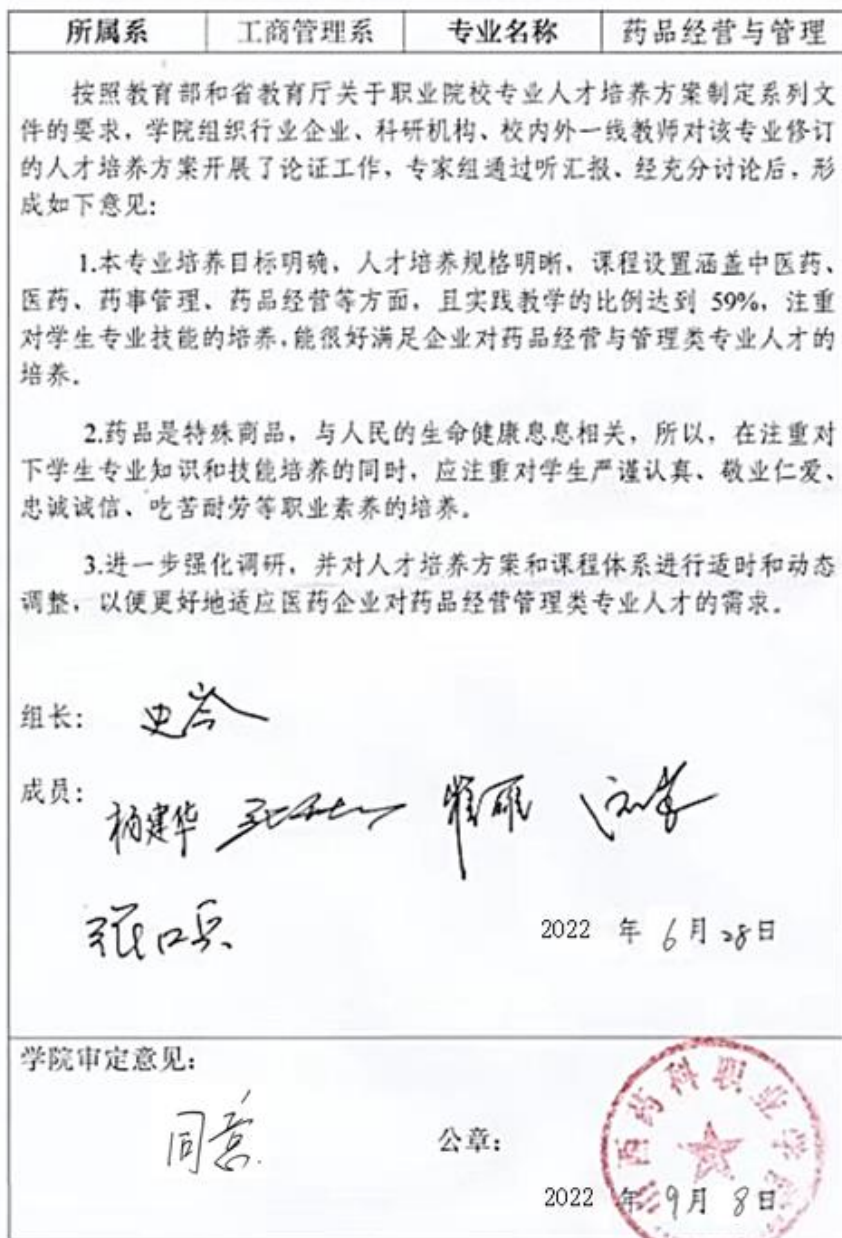 所属系 工商管理系 专业名称 药品经营与管理
按照教育部和省教育厅关于职业院校专业人才培养方案制定系列文
件的要求，学院组织行业企业、科研机构、校内外一线教师对该专业修订
的人才培养方案开展了论证工作，专家组通过听汇报、经充分讨论后，形
成如下意见：
1.本专业培养目标明确，人才培养规格明晰，课程设置涵盖中医药、
医药、药事管理、药品经营等方面，且实践教学的比例达到 59%，注重
对学生专业技能的培养，能很好满足企业对药品经营与管理类专业人才的
培养。
2.药品是特殊商品，与人民的生命健康息息相关，所以，在注重对
下学生专业知识和技能培养的同时，应注重对学生严谨认真、敬业仁爱、
忠诚诚信、吃苦耐劳等职业素养的培养。
3.进一步强化调研，并对人才培养方案和课程体系进行适时和动态
调整，以便更好地适应医药企业对药品经营管理类专业人才的需求。
组长：
成员：
2022 年 6月 28日
学院审定意见：
同意
公章：
西药科职业学
2022 年 9月 8日